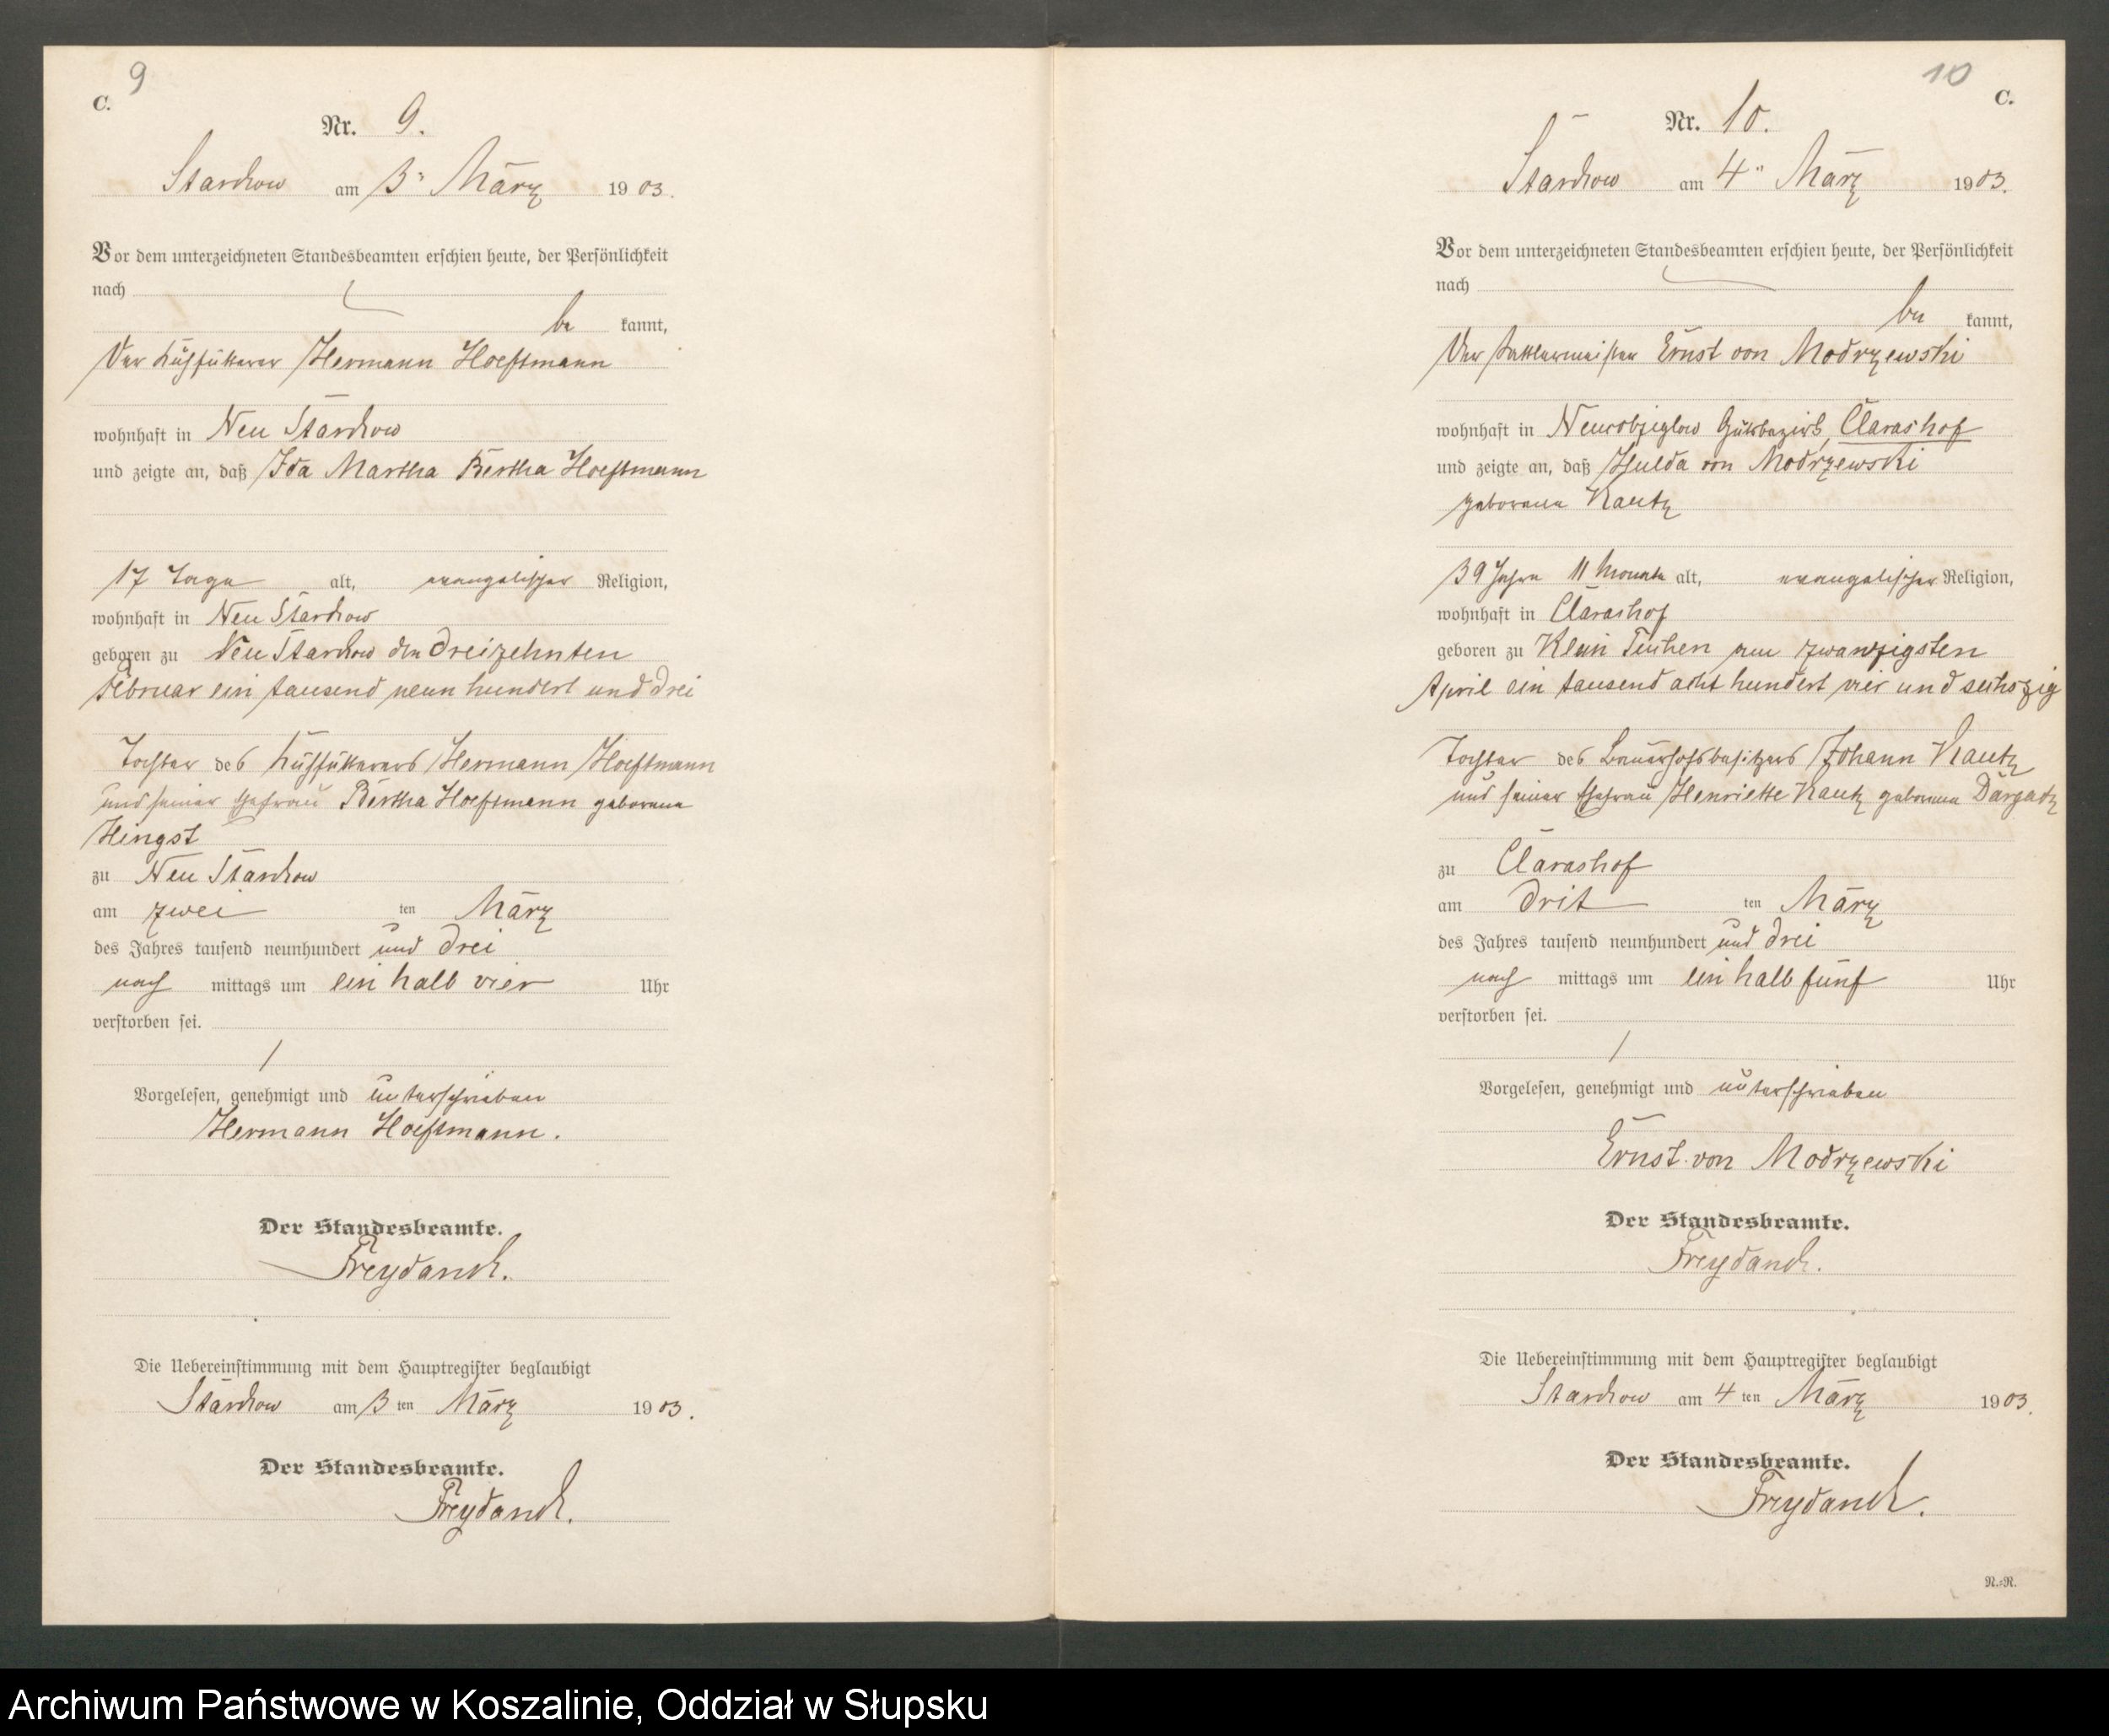 9
C.
Nr. 9.
Starkow am 3" März 1903.
Vor dem unterzeichneten Standesbeamten erschien heute, der Persönlichkeit
nach
be kannt,
Der Kuhfütterer Hermann Hoeftmann
wohnhaft in Neu Starkow
und zeigte an, daß Ida Martha Bertha Hoeftmann
17 Tage alt, evangelischer Religion,
wohnhaft in Neu Starkow
geboren zu Neu Starkow den dreizehnten
Februar ein tausend neun hundert und drei
Tochter des Kuhfütterers Hermann Hoeftmann
und seiner Ehefrau Bertha Hoeftmann geborene
Hingst
zu Neu Starkow
am zwei ten März
des Jahres tausend neunhundert und drei
nach mittags um ein halb vier Uhr
verstorben sei.
Vorgelesen, genehmigt und unterschrieben
Hermann Hoeftmann.
Der Standesbeamte.
Freydanck.
Die Uebereinstimmung mit dem Hauptregister beglaubigt
Starkow am 3 ten März 1903.
Der Standesbeamte.
Freydanck.
10
C.
Nr. 10.
Starkow am 4" März 1903.
Vor dem unterzeichneten Standesbeamten erschien heute, der Persönlichkeit
nach
be kannt,
Der Sattlermeister Ernst von Modrzewski
wohnhaft in Neukolziglow Gutsbezirk, Clarashof
und zeigte an, daß Hulda von Modrzewski
geborene Kautz
39 Jahre 11 Monate alt, evangelischer Religion,
wohnhaft in Clarashof
geboren zu Klein Tuchen am zwanzigsten
April ein tausend acht hundert vier und sechszig
Tochter des Bauerhofsbesitzers Johann Kautz
und seiner Ehefrau Henriette Kautz geborene Dargatz
zu Clarashof
am drit ten März
des Jahres tausend neunhundert und drei
nach mittags um ein halb fünf Uhr
verstorben sei.
Vorgelesen, genehmigt und unterschrieben
Ernst von Modrzewski
Der Standesbeamte.
Freydanck.
Die Uebereinstimmung mit dem Hauptregister beglaubigt
Starkow am 4 ten März 1903.
Der Standesbeamte.
Freydanck.
R.=R.
Archiwum Państwowe w Koszalinie, Oddział w Słupsku